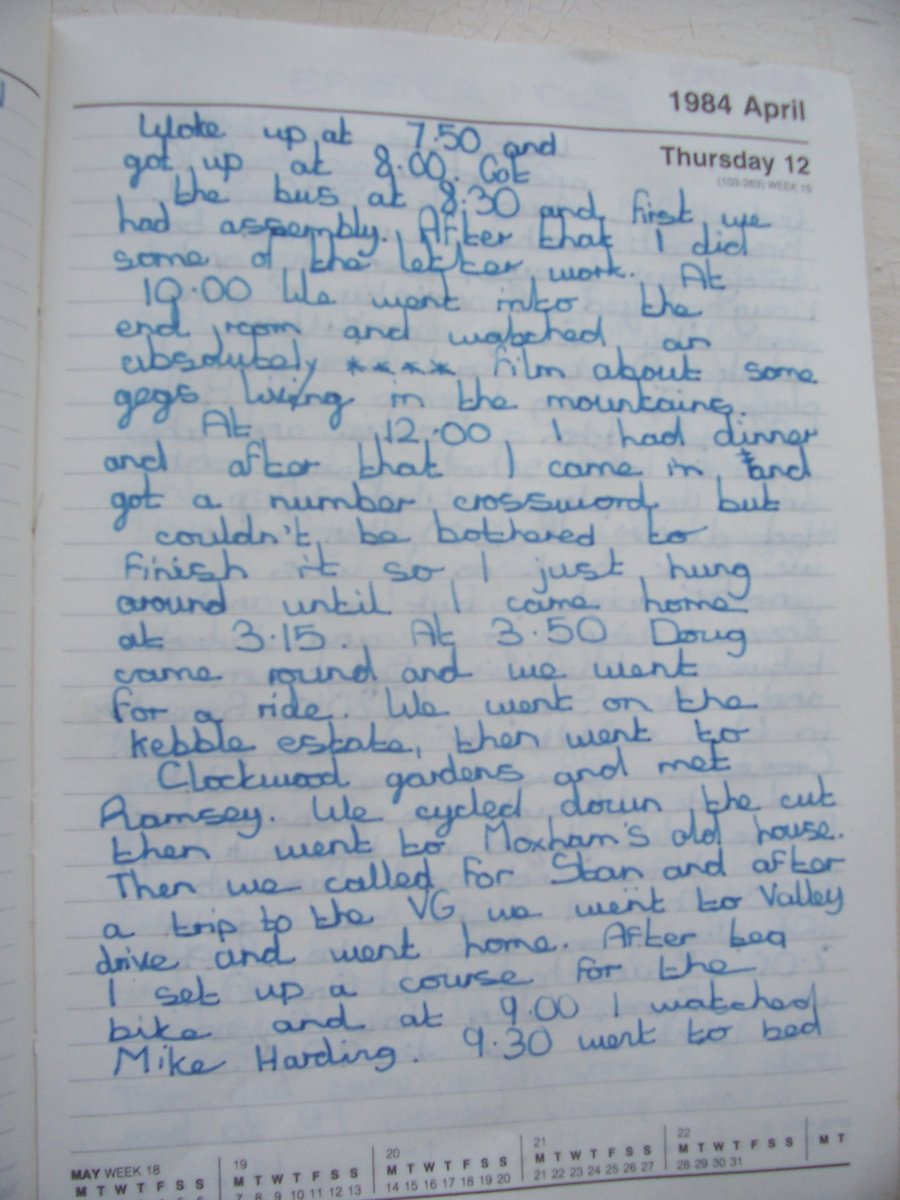 1984 April
Thursday 12
(103-263) WEEK 15
Woke up at 7.50 and
got up at 8.00. Got
the bus at 8.30 and first we
had assembly. After that I did
some of the letter work. At
10.00 We went into the
end room and watched an
absolutely **** film about some
gegs living in the mountains.
At 12.00 I had dinner
and after that I came in and
got a number crossword but
couldn't be bothered to
finish it so I just hung
around until I came home
at 3.15. At 3.50 Doug
came round and we went
for a ride. We went on the
kebble estate, then went to
Clockwood gardens and met
Ramsey. We cycled down the cut
then went to Moxham's old house.
Then we called for Stan and after
a trip to the VG we went to Valley
drive and went home. After tea
I set up a course for the
bike and at 9.00 I watched
Mike Harding. 9.30 went to bed
MAY WEEK 18 19 20 21 22
M T W T F S S M T W T F S S M T W T F S S M T W T F S S M T W T F S S M T
7 8 9 10 11 12 13 14 15 16 17 18 19 20 21 22 23 24 25 26 27 28 29 30 31